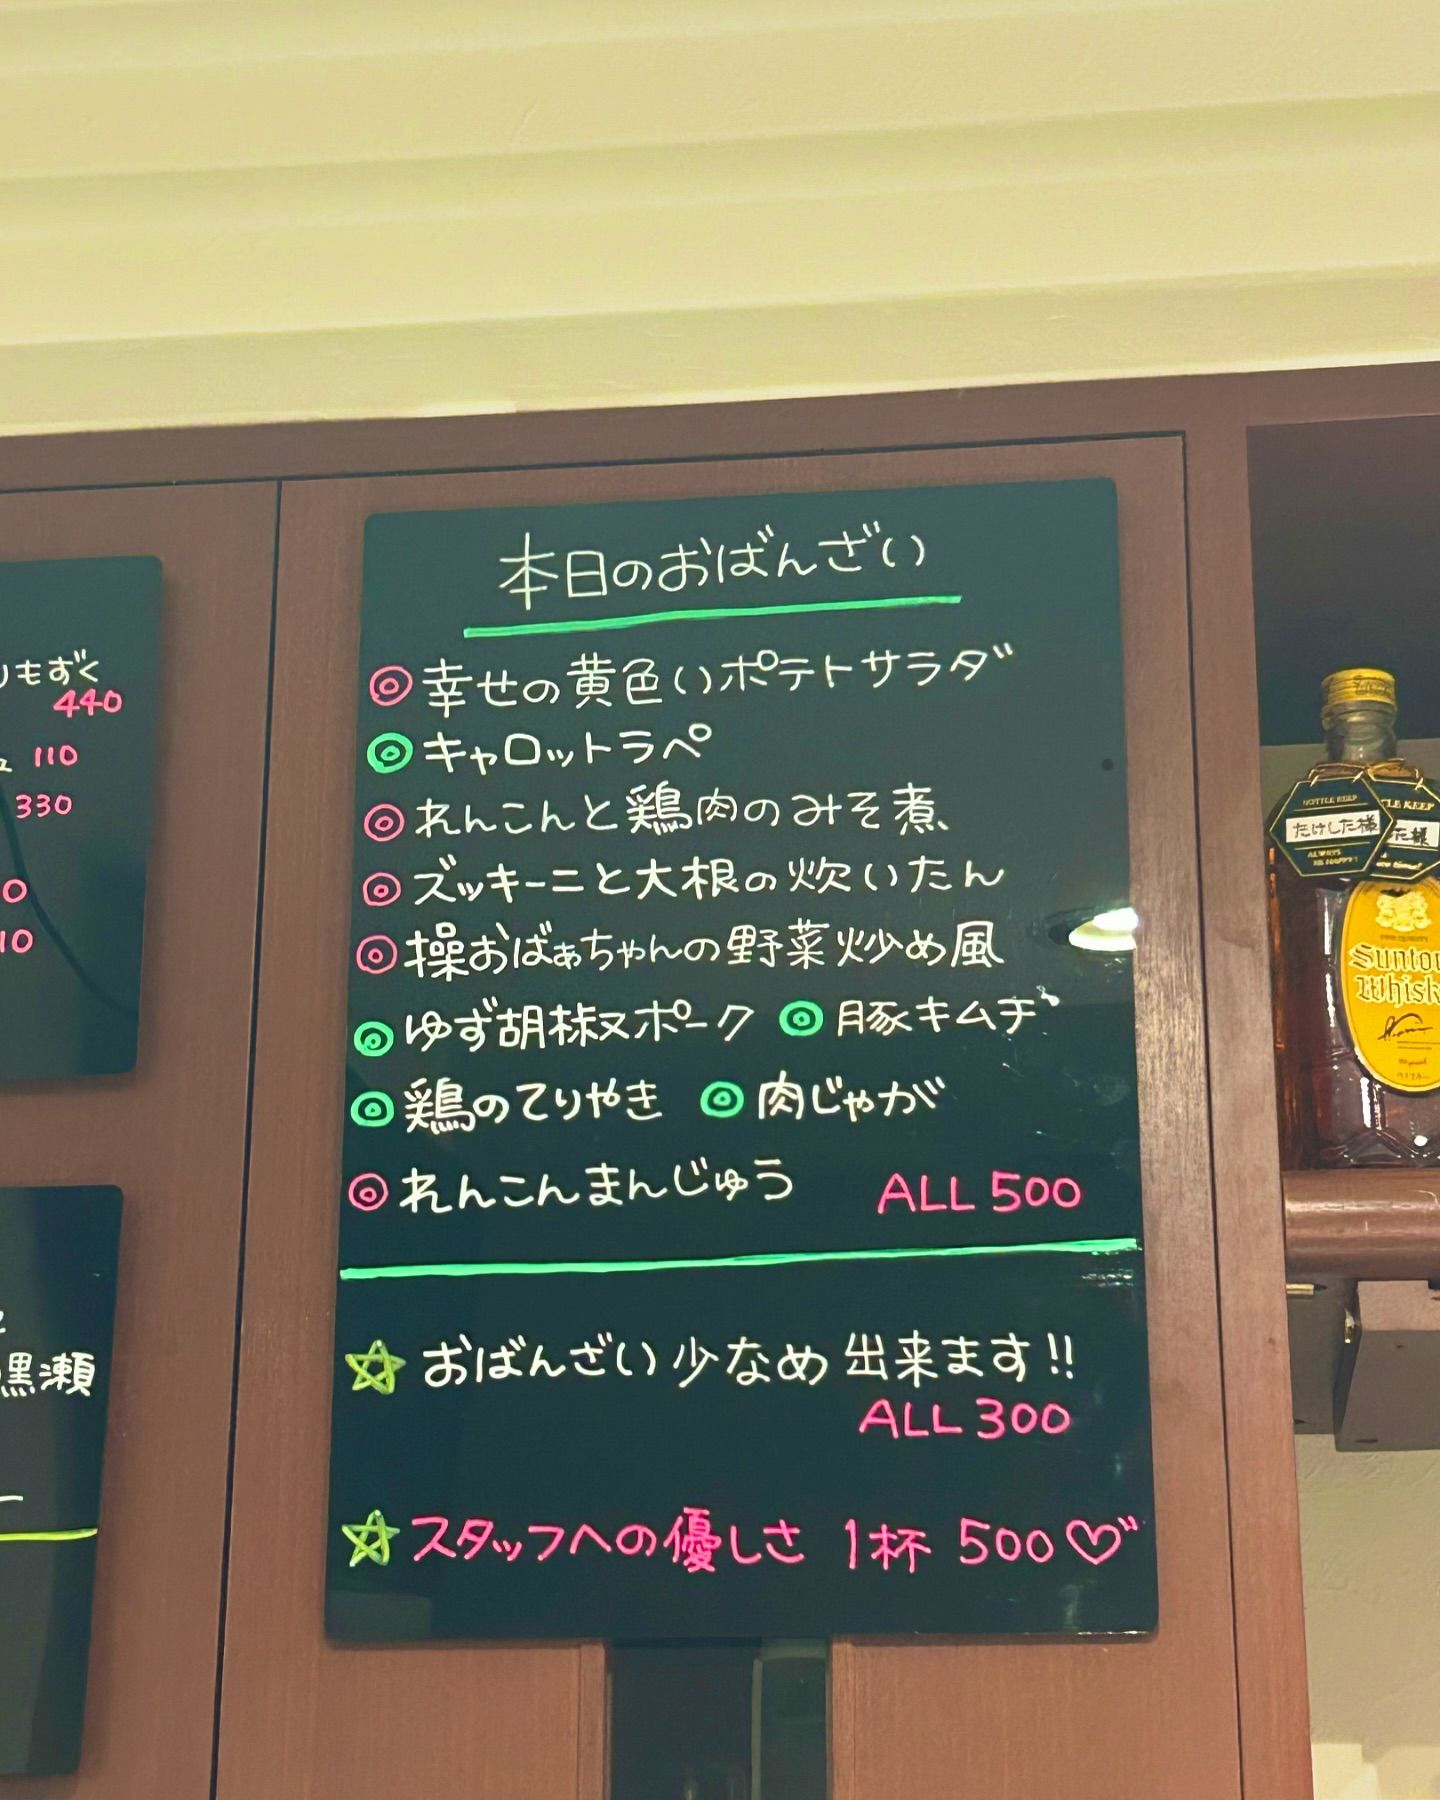 本日のおばんざい
◎幸せの黄色いポテトサラダ
◎キャロットラペ
◎れんこんと鶏肉のみそ煮
◎ズッキーニと大根の炊いたん
◎操おばぁちゃんの野菜炒め風
◎ゆず胡椒ポーク ◎豚キムチ
◎鶏のてりやき ◎肉じゃが
◎れんこんまんじゅう ALL 500
☆おばんざい少なめ出来ます!!
ALL 300
☆スタッフへの優しさ 1杯 500♡
もずく
440
110
330
0
10
黒瀬
BOTTLE KEEP
たけした様
ALWAYS
BE HAPPY!
TLE KEEP
た様
Sunto
Whisk